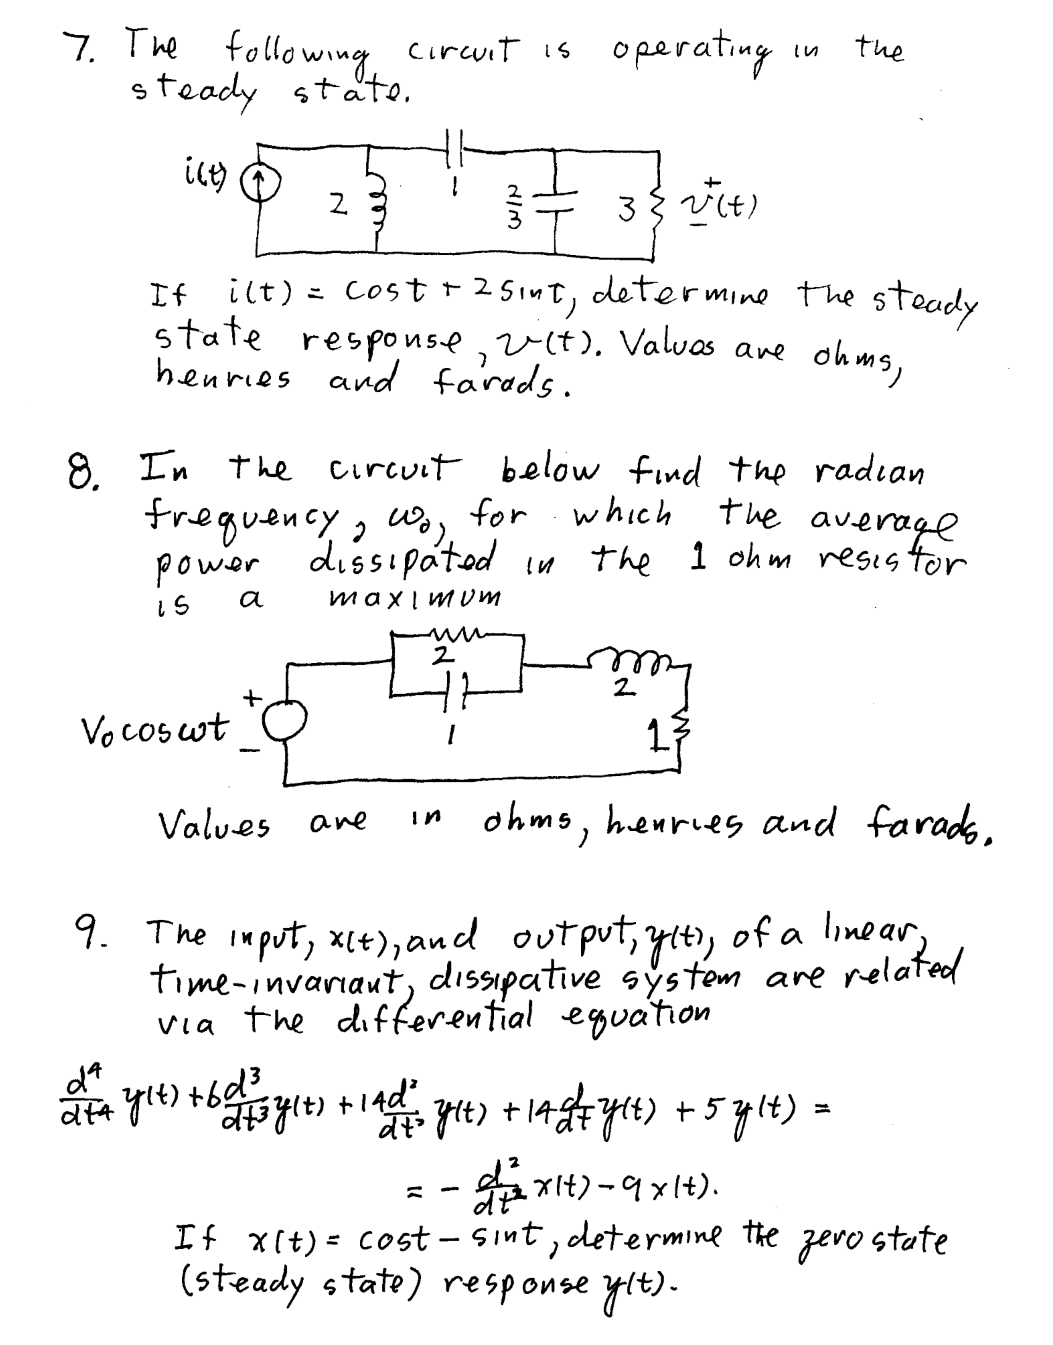 7. The following circuit is operating in the
steady state.
i(t)
2
1
2/3
3
+
v(t)
-
If i(t) = cost + 2 sint, determine the steady
state response, v(t). Values are ohms,
henries and farads.
8. In the circuit below find the radian
frequency, ω₀, for which the average
power dissipated in the 1 ohm resistor
is a maximum
2
1
2
1
+
V₀ cos ωt
-
Values are in ohms, henries and farads.
9. The input, x(t), and output, y(t), of a linear,
time-invariant, dissipative system are related
via the differential equation
d⁴/dt⁴ y(t) + 6 d³/dt³ y(t) + 14 d²/dt² y(t) + 14 d/dt y(t) + 5 y(t) =
= - d²/dt² x(t) - 9 x(t).
If x(t) = cost - sint, determine the zero state
(steady state) response y(t).